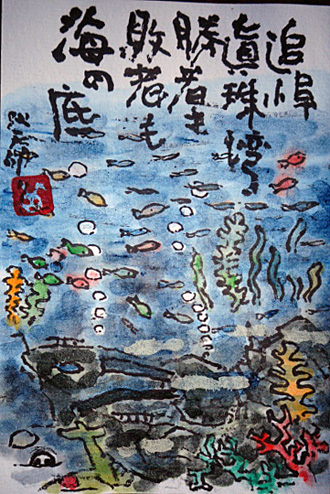 追悼
眞珠湾
勝者も
敗者も
海の底